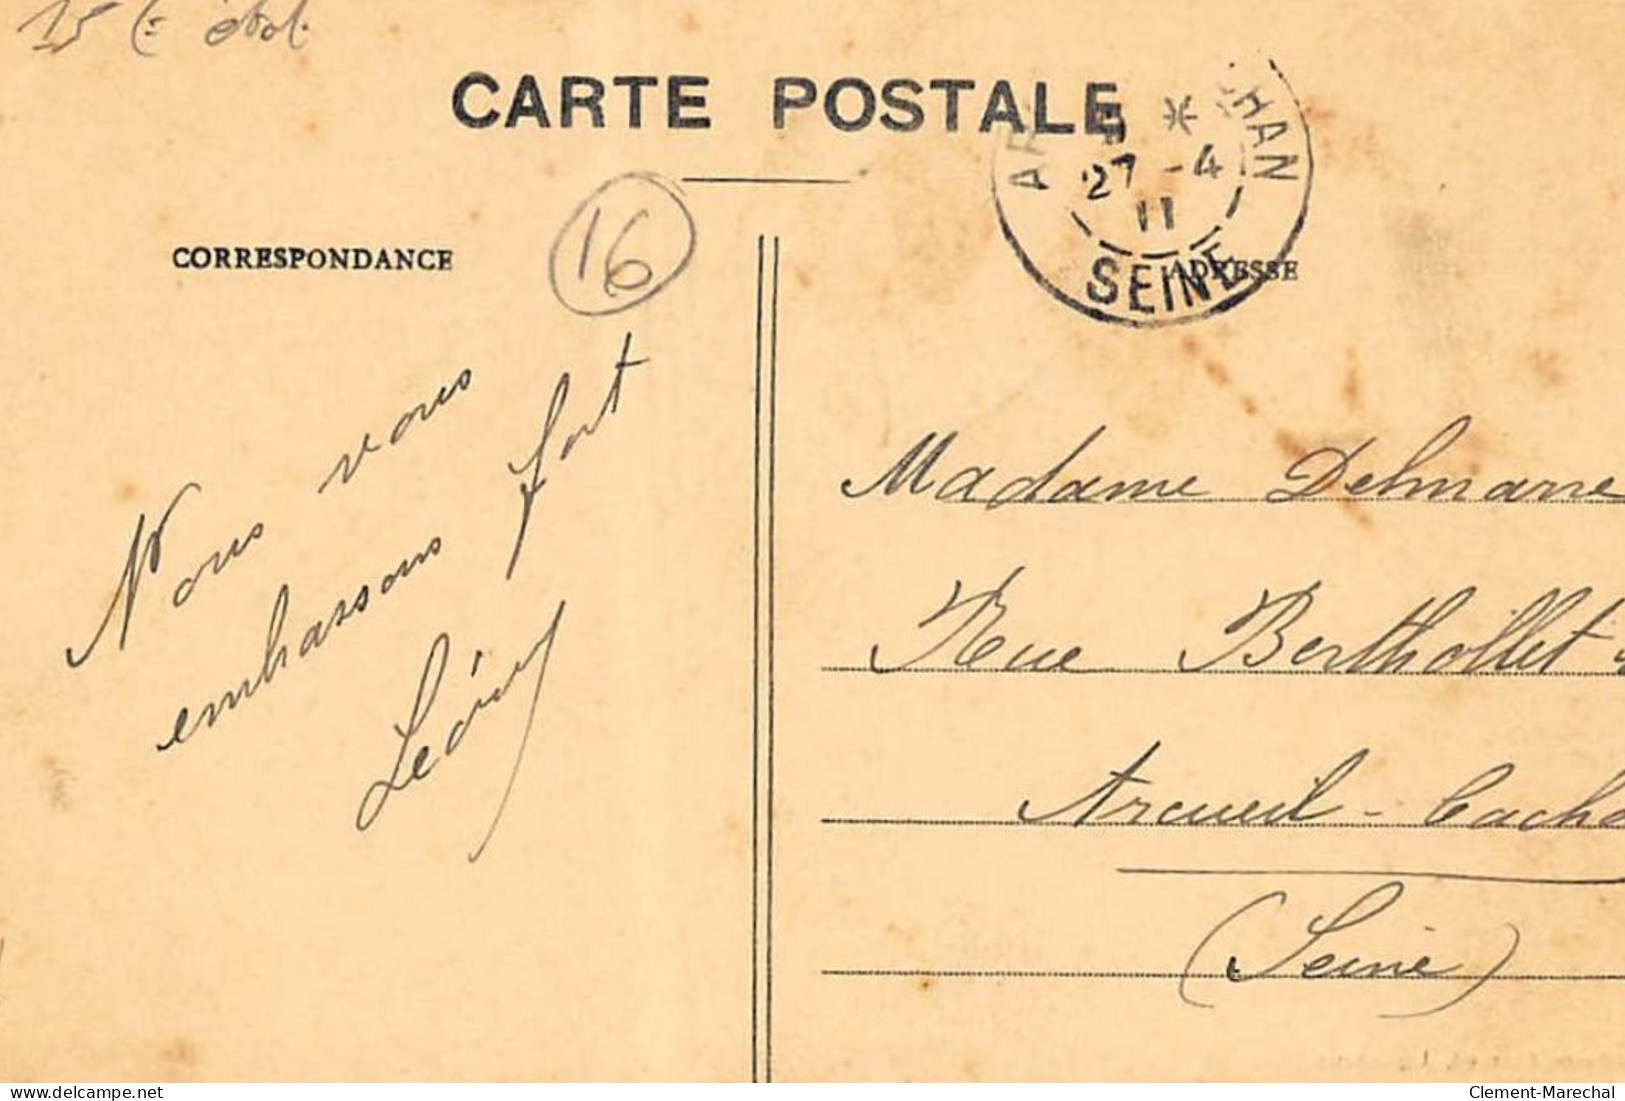 15 €
CARTE POSTALE
27 -4
11
HAN
SEINE
16
CORRESPONDANCE
ADRESSE
Nous vous
embrassons fort
Madame Delmarre
Rue Berthollet
Arcueil - Cacha
(Seine)
delcampe.net
Clement-Marechal